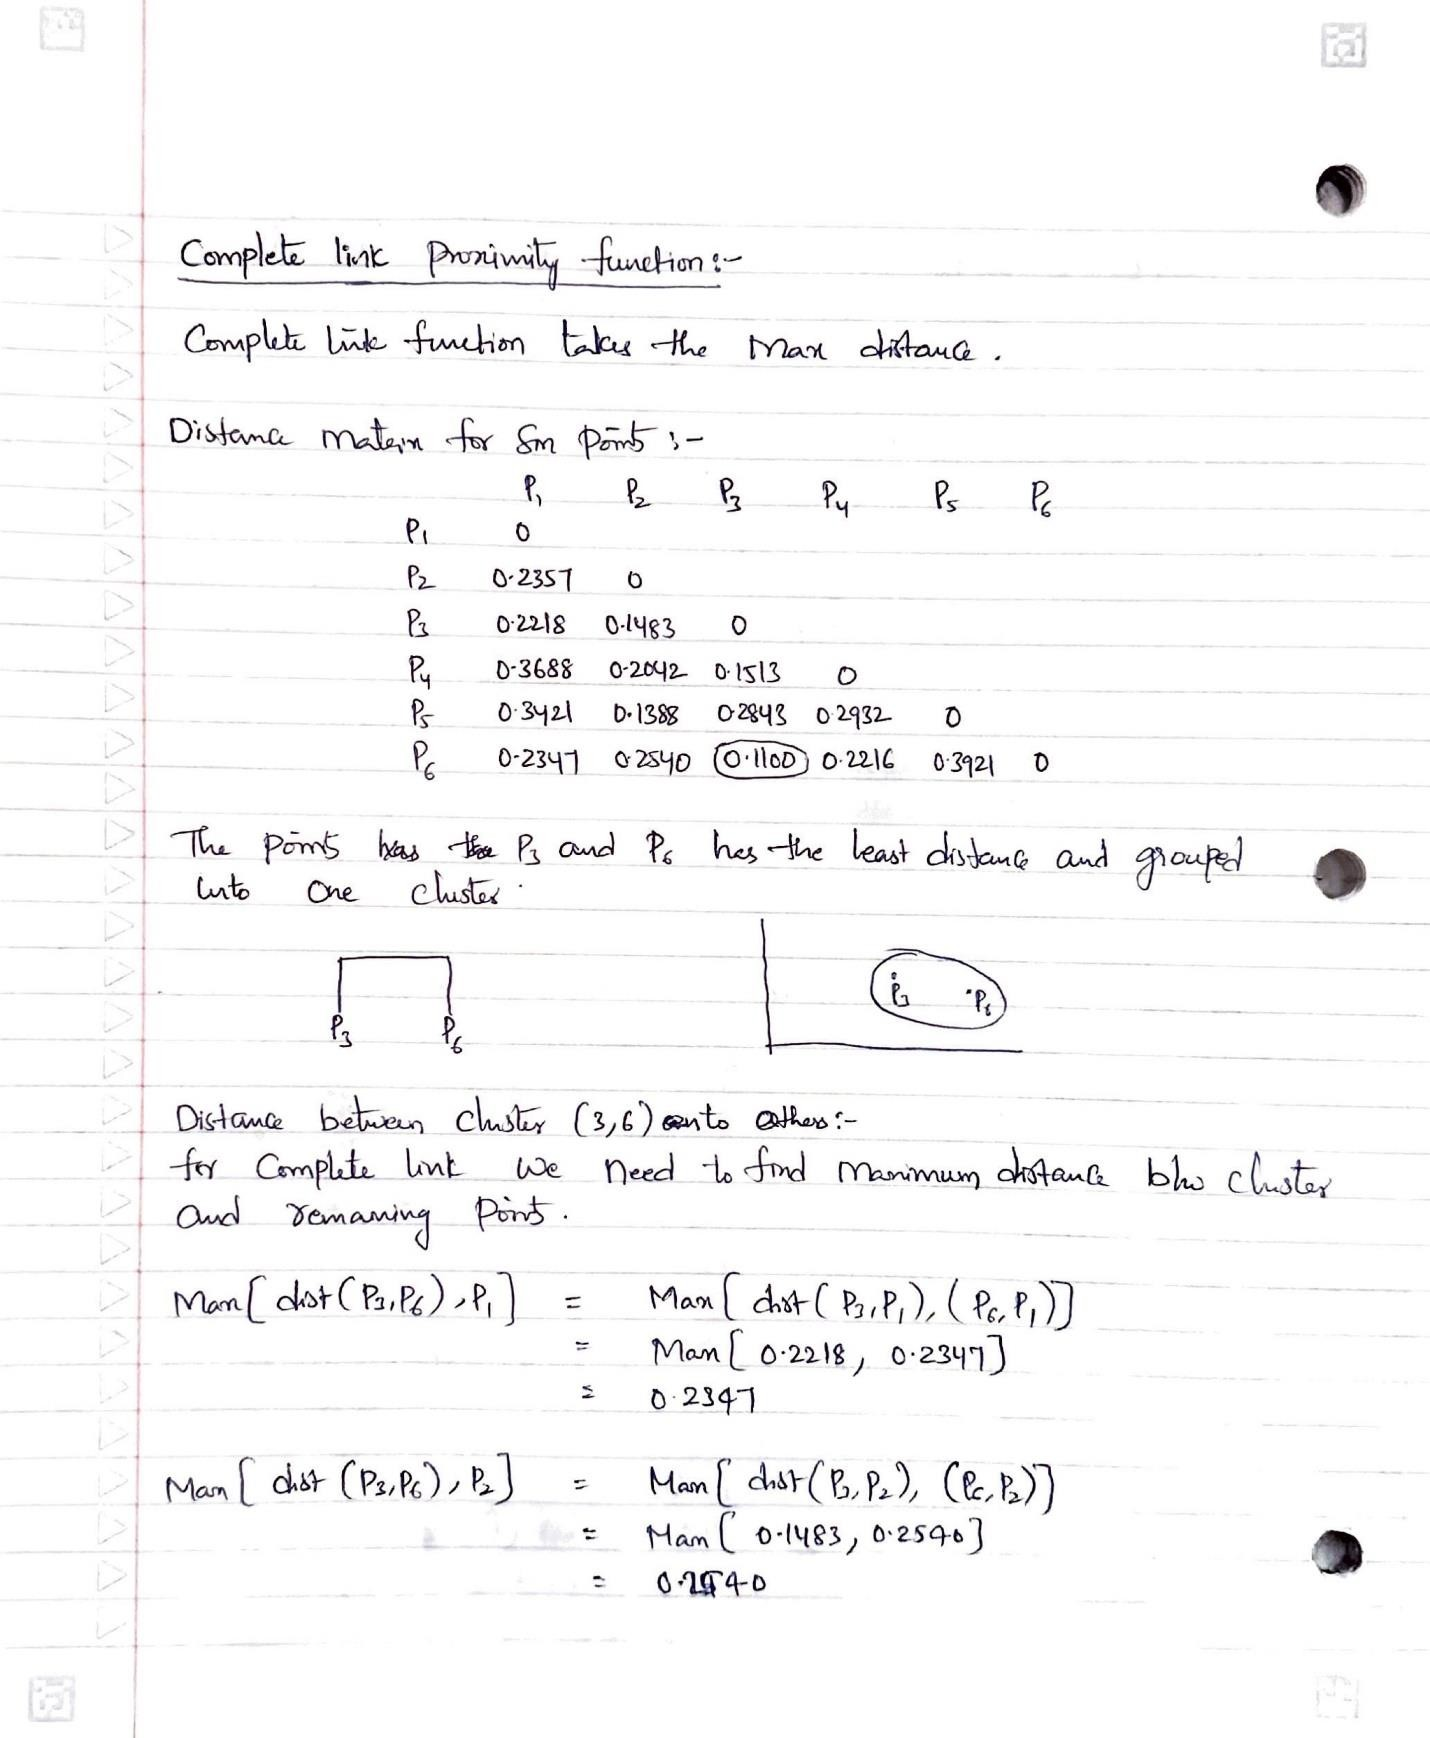 Complete link Proximity function :-
Complete link function takes the Max distance .
Distance Matrix for Six points :-
P1 P2 P3 P4 P5 P6
P1 0
P2 0.2357 0
P3 0.2218 0.1483 0
P4 0.3688 0.2042 0.1513 0
P5 0.3421 0.1388 0.2843 0.2932 0
P6 0.2347 0.2540 0.1100 0.2216 0.3921 0
The points P3 and P6 has the least distance and grouped
into one cluster .
P3 P6
P3 P6
Distance between cluster (3,6) to others :-
for Complete link we need to find Maximum distance b/w cluster
and remaning points .
Max [ dist (P3,P6) , P1 ] = Max [ dist ( P3,P1), ( P6,P1)]
= Max [ 0.2218, 0.2347]
= 0.2347
Max [ dist (P3,P6), P2 ] = Max [ dist (P3,P2), (P6,P2)]
= Max [ 0.1483, 0.2540]
= 0.2540